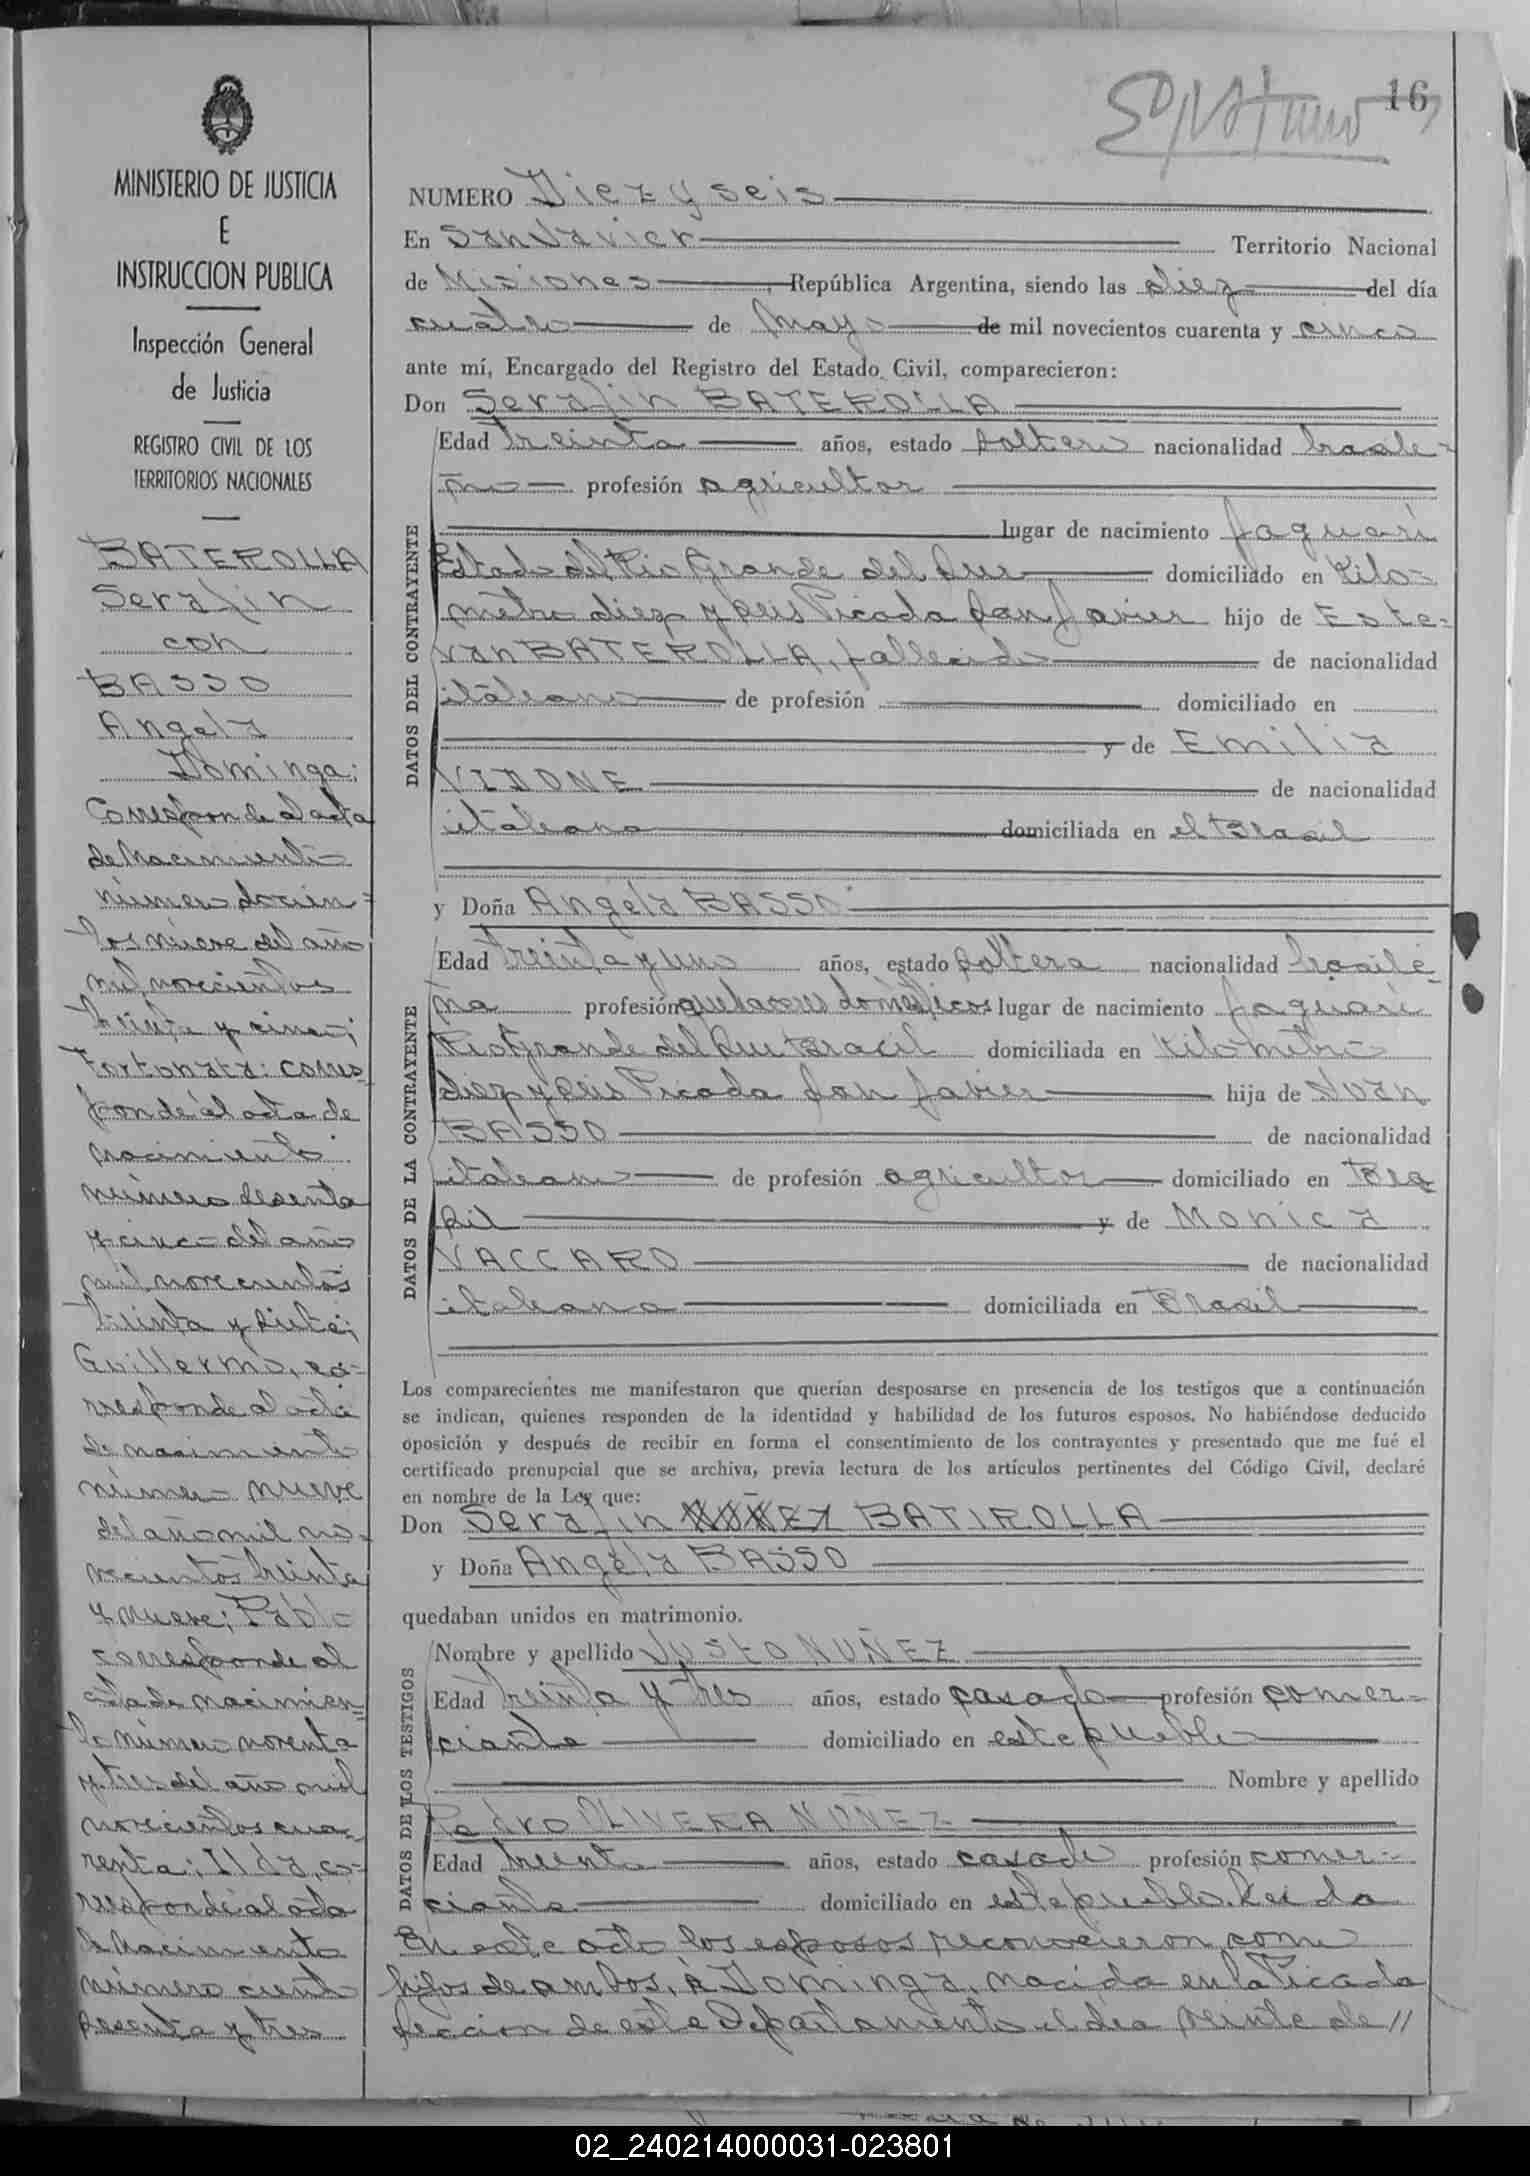 16
MINISTERIO DE JUSTICIA
E
INSTRUCCION PUBLICA
Inspección General
de Justicia
REGISTRO CIVIL DE LOS
TERRITORIOS NACIONALES
BATEROLLA
Serafin
con
BASSO
Angela
Dominga:
Corresponde al acta
de Nacimiento
número docien=
tos nueve del año
mil novecientos
treinta y cinco;
Fortonata: corres=
ponde al acta de
nacimiento
número sesenta
y cinco del año
mil novecientos
treinta y siete;
Guillermo, co=
rresponde al acta
de nacimiento
número nueve
del año mil no=
vecientos treinta
y nueve; Pablo
corresponde al
acta de nacimien=
to número noventa
y tres del año mil
novecientos cua=
renta; Ilda, co=
rresponde al acta
de Nacimiento
número ciento
sesenta y tres
NUMERO Diez y seis
En San Javier Territorio Nacional
de Misiones, República Argentina, siendo las diez del día
cuatro de Mayo de mil novecientos cuarenta y cinco
ante mí, Encargado del Registro del Estado Civil, comparecieron:
Don Serafin BATEROLLA
DATOS DEL CONTRAYENTE
Edad treinta años, estado soltero nacionalidad brasile=
ño profesión agricultor
lugar de nacimiento Jaguarí
Estado del Rio Grande del Sur domiciliado en Kilo=
metro diez y seis Picada San Javier hijo de Este=
van BATEROLLA, fallecido de nacionalidad
italiano de profesión domiciliado en
y de Emilia
VIDONE de nacionalidad
italiana domiciliada en el Brasil
y Doña Angela BASSO
DATOS DE LA CONTRAYENTE
Edad treinta y uno años, estado soltera nacionalidad brasile=
ña profesión quehaceres domésticos lugar de nacimiento Jaguarí
Rio Grande del Sur Brasil domiciliada en Kilometro
diez y seis Picada San Javier hija de Juan
BASSO de nacionalidad
italiano de profesión agricultor domiciliado en Bra
sil y de Monica
VACCARO de nacionalidad
italiana domiciliada en Brasil
Los comparecientes me manifestaron que querían desposarse en presencia de los testigos que a continuación
se indican, quienes responden de la identidad y habilidad de los futuros esposos. No habiéndose deducido
oposición y después de recibir en forma el consentimiento de los contrayentes y presentado que me fué el
certificado prenupcial que se archiva, previa lectura de los artículos pertinentes del Código Civil, declaré
en nombre de la Ley que:
Don Serafin NUÑEZ BATIROLLA
y Doña Angela BASSO
quedaban unidos en matrimonio.
DATOS DE LOS TESTIGOS
Nombre y apellido Justo NUÑEZ
Edad treinta y tres años, estado casado profesión comer=
ciante domiciliado en este pueblo
Nombre y apellido
Pedro OLIVERA NUÑEZ
Edad treinta años, estado casado profesión comer=
ciante domiciliado en este pueblo. Leida
En este acto los esposos reconocieron como
hijos de ambos, á Dominga, nacida en la Picada
seccion de este Departamento el dia veinte de //
02_240214000031-023801